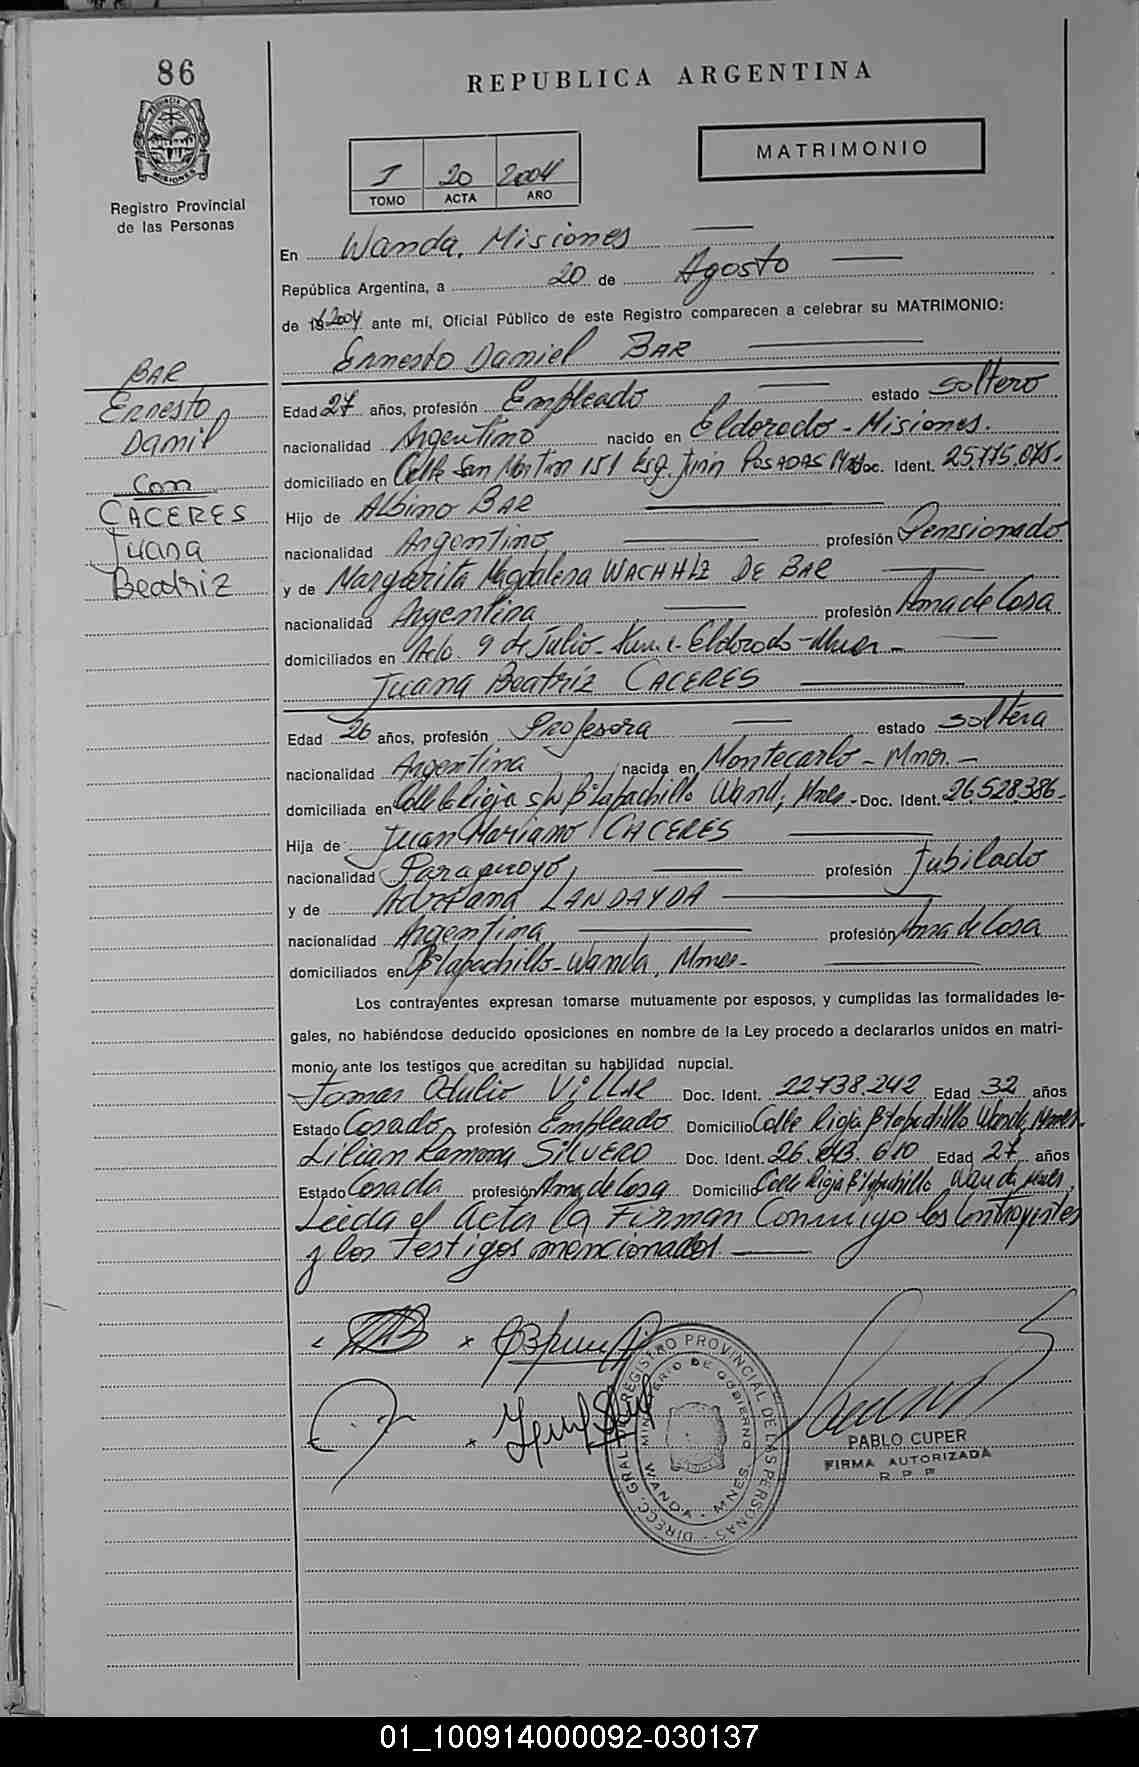 86
REPUBLICA ARGENTINA
MATRIMONIO
PROVINCIA DE MISIONES
Registro Provincial
de las Personas
I 20 2004
TOMO ACTA AÑO
En Wanda, Misiones
República Argentina, a 20 de Agosto
de 19 2004 ante mí, Oficial Público de este Registro comparecen a celebrar su MATRIMONIO:
Ernesto Daniel BAR
BAR
Ernesto
Daniil
Con
CACERES
Juana
Beatriz
Edad 27 años, profesión Empleado estado soltero
nacionalidad Argentino nacido en Eldorado - Misiones.
domiciliado en Calle San Martin 151 Esq. Junin POSADAS Doc. Ident. 25.775.075.-
Hijo de Albino BAR
nacionalidad Argentino profesión Pensionado
y de Margarita Magdalena DE BAR
nacionalidad Argentina profesión Ama de Casa
domiciliados en 9 de Julio - Eldorado -
Juana Beatriz CACERES
Edad 26 años, profesión Profesora estado soltera
nacionalidad Argentina nacida en Montecarlo - Mnes. -
domiciliada en Calle la Rioja s/n Bº Lapachillo Wand, Mnes - Doc. Ident. 26.528.386.-
Hija de Juan Mariano CACERES
nacionalidad Paraguayo profesión Jubilado
y de Adriana LANDAYDA
nacionalidad Argentina profesión Ama de Casa
domiciliados en Bº Lapachillo - Wanda, Mnes -
Los contrayentes expresan tomarse mutuamente por esposos, y cumplidas las formalidades le-
gales, no habiéndose deducido oposiciones en nombre de la Ley procedo a declararlos unidos en matri-
monio ante los testigos que acreditan su habilidad nupcial.
Tomas Odulio Doc. Ident. 22.738.242 Edad 32 años
Estado Casado profesión Empleado Domicilio Calle Rioja Bº Lapachillo Wanda Mnes.
Lilian Ramona SILVERO Doc. Ident. 26. 610 Edad 27 años
Estado Casada profesión Ama de Casa Domicilio Calle Rioja Bº Lapachillo Wanda Mnes.
Leida el Acta la Firman Conmigo los Contrayentes
y los testigos mencionados.
DIRECC. GRAL. DEL REGISTRO PROVINCIAL DE LAS PERSONAS
MINISTERIO DE GOBIERNO
WANDA - MNES.
PABLO CUPER
FIRMA AUTORIZADA
R P P
01_100914000092-030137